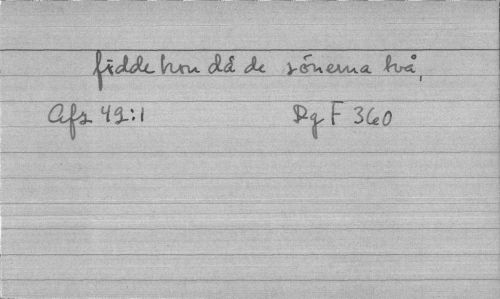 fidde hon då de sönerna två,
Afz 49:1 Dg F 360